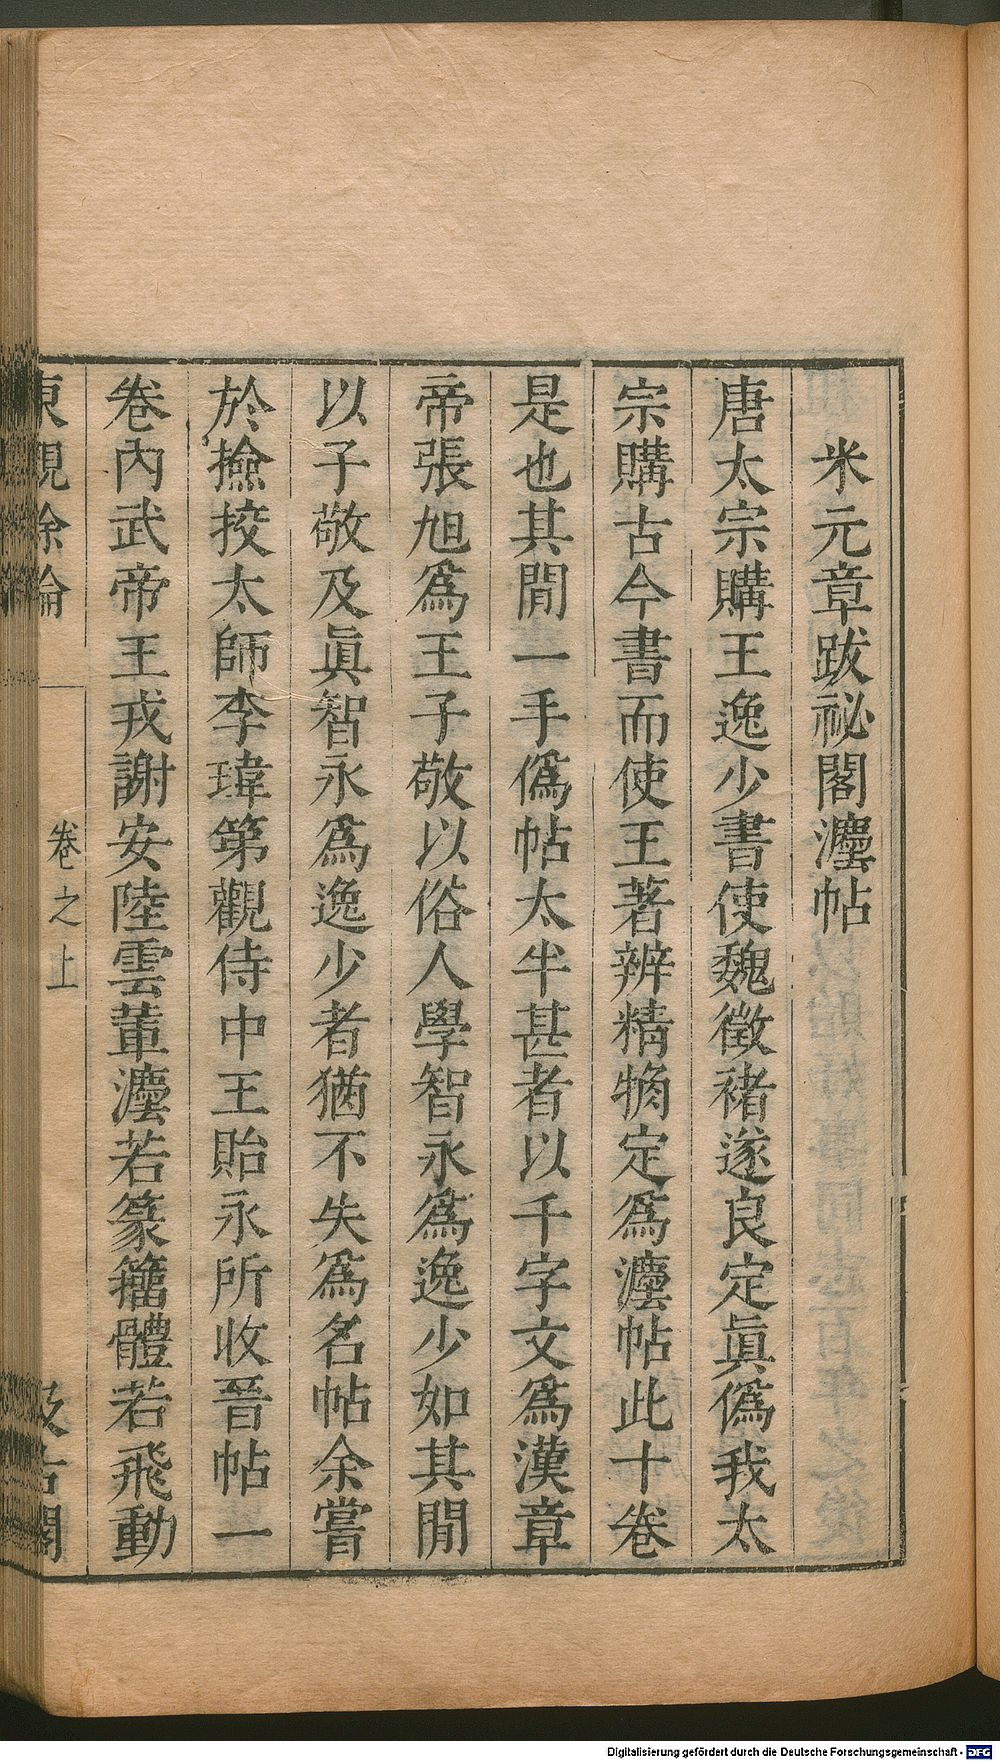 米元章跋祕閣灋帖
唐太宗購王逸少書使魏徵褚遂良定眞僞我太
宗購古今書而使王著辨精觕定爲灋帖此十卷
是也其閒一手僞帖太半甚者以千字文爲漢章
帝張旭爲王子敬以俗人學智永爲逸少如其閒
以子敬及眞智永爲逸少者猶不失爲名帖余嘗
於撿挍太師李瑋第觀侍中王貽永所收晉帖一
卷內武帝王戎謝安陸雲輩灋若篆籀體若飛動
東觀餘論
卷之上
汲古閣
Digitalisierung gefördert durch die Deutsche Forschungsgemeinschaft - DFG